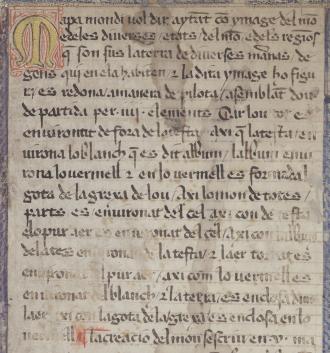 Mapa mondi vol dir aytāt cō ymage del mōn
e de les diverses etats del mōn e de les regiōs
q̄ son sus la terra de diverses maneras de
gens qui en ela habiten ⁊ la dita ymage ho figu
ra es redona a manera de pilota / asemblāt dou
de partida per ·iiii· elements Car lou
environat de fora de la testa / axi q̄ la testa / en
virona lo blanch q̄ es dit album / lalbum envi
rona lo vermell ⁊ en lo vermell es formada l
gota de la grexa de lou / axi lo mon de totes
parts es environat del cel axi con de testa
e lo pur aer es environat del cel / axi con
de l es environat de la testa / ⁊ laer es
environat del pur aer / axi com lo vermell es
environat del blanch / ⁊ la terra es enclosa dins
laer axi con la gota de la grexa es enclosa en lo
vermell la creacio del mōn sescriu en